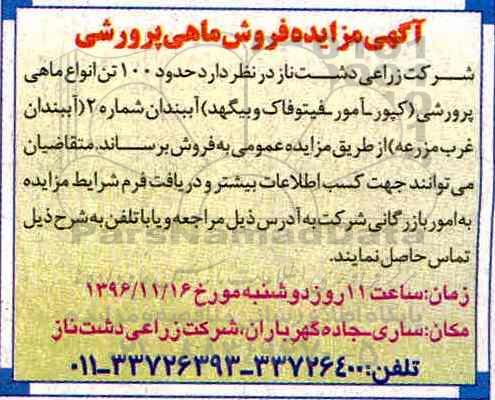 آگهی مزایده فروش ماهی پرورشی
شرکت زراعی دشت ناز در نظر دارد حدود ۱۰۰ تن انواع ماهی
پرورشی (کپور ـ آمور ـ فیتوفاک و بیگهد) آببندان شماره ۲ (آببندان
غرب مزرعه) از طریق مزایده عمومی به فروش برساند. متقاضیان
می توانند جهت کسب اطلاعات بیشتر و دریافت فرم شرایط مزایده
به امور بازرگانی شرکت به آدرس ذیل مراجعه و یا با تلفن به شرح ذیل
تماس حاصل نمایند.
زمان: ساعت ۱۱ روز دوشنبه مورخ ۱۳۹۶/۱۱/۱۶
مکان: ساری ـ جاده گهرباران، شرکت زراعی دشت ناز
تلفن: ۳۳۷۲۶۴۰۰ ـ ۳۳۷۲۶۳۹۳ ـ ۰۱۱